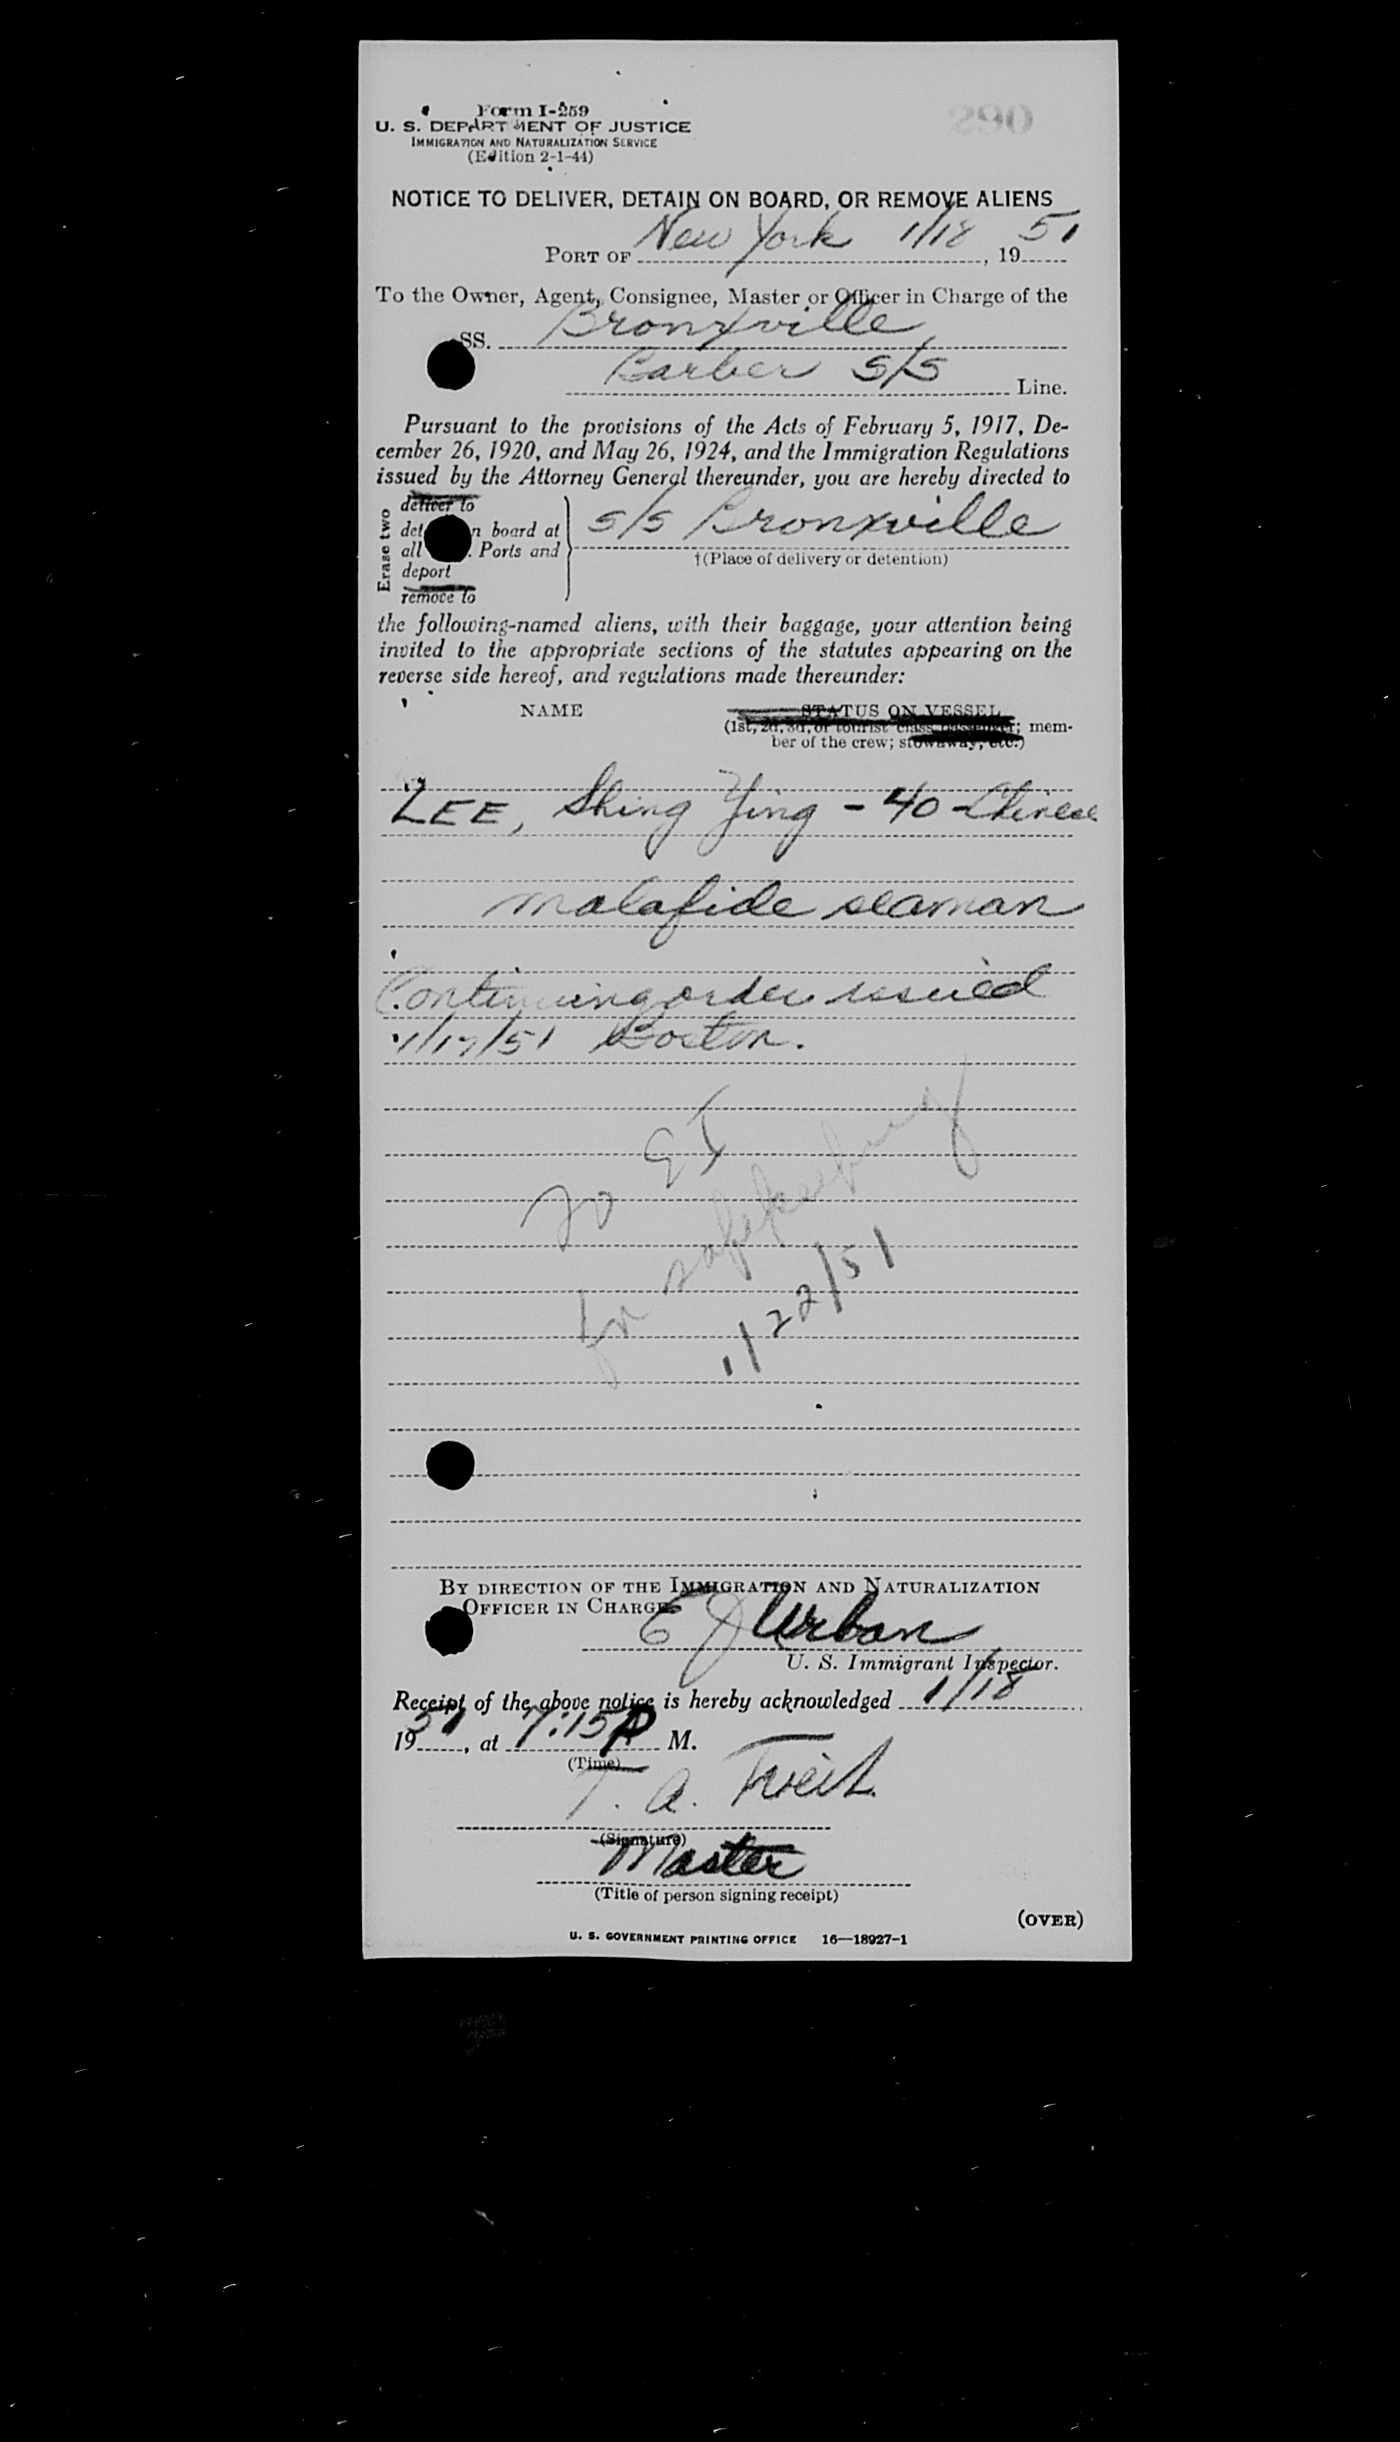 Form I-259
U. S. DEPARTMENT OF JUSTICE
IMMIGRATION AND NATURALIZATION SERVICE
(Edition 2-1-44)
290
NOTICE TO DELIVER, DETAIN ON BOARD, OR REMOVE ALIENS
PORT OF New York 1/18, 1951
To the Owner, Agent, Consignee, Master or Officer in Charge of the
SS. Bronxville
Barber S/S Line.
Pursuant to the provisions of the Acts of February 5, 1917, De-
cember 26, 1920, and May 26, 1924, and the Immigration Regulations
issued by the Attorney General thereunder, you are hereby directed to
Erase two
deliver to
det n board at
all . Ports and
deport
remove to
S/S Bronxville
†(Place of delivery or detention)
the following-named aliens, with their baggage, your attention being
invited to the appropriate sections of the statutes appearing on the
reverse side hereof, and regulations made thereunder:
NAME STATUS ON VESSEL
(1st, 2d, 3d, or tourist class passenger; mem-
ber of the crew; stowaway, etc.)
LEE, Shing Ying - 40 - Chinese
malafide seaman
Continuing order issued
1/17/51 Boston.
To EI
for safekeeping
1/22/51
BY DIRECTION OF THE IMMIGRATION AND NATURALIZATION
OFFICER IN CHARGE
E J Urban
U. S. Immigrant Inspector.
Receipt of the above notice is hereby acknowledged 1/18
1951, at 7:15 P M.
(Time)
T. A. Tveit
(Signature)
Master
(Title of person signing receipt)
(OVER)
U. S. GOVERNMENT PRINTING OFFICE 16—18927-1